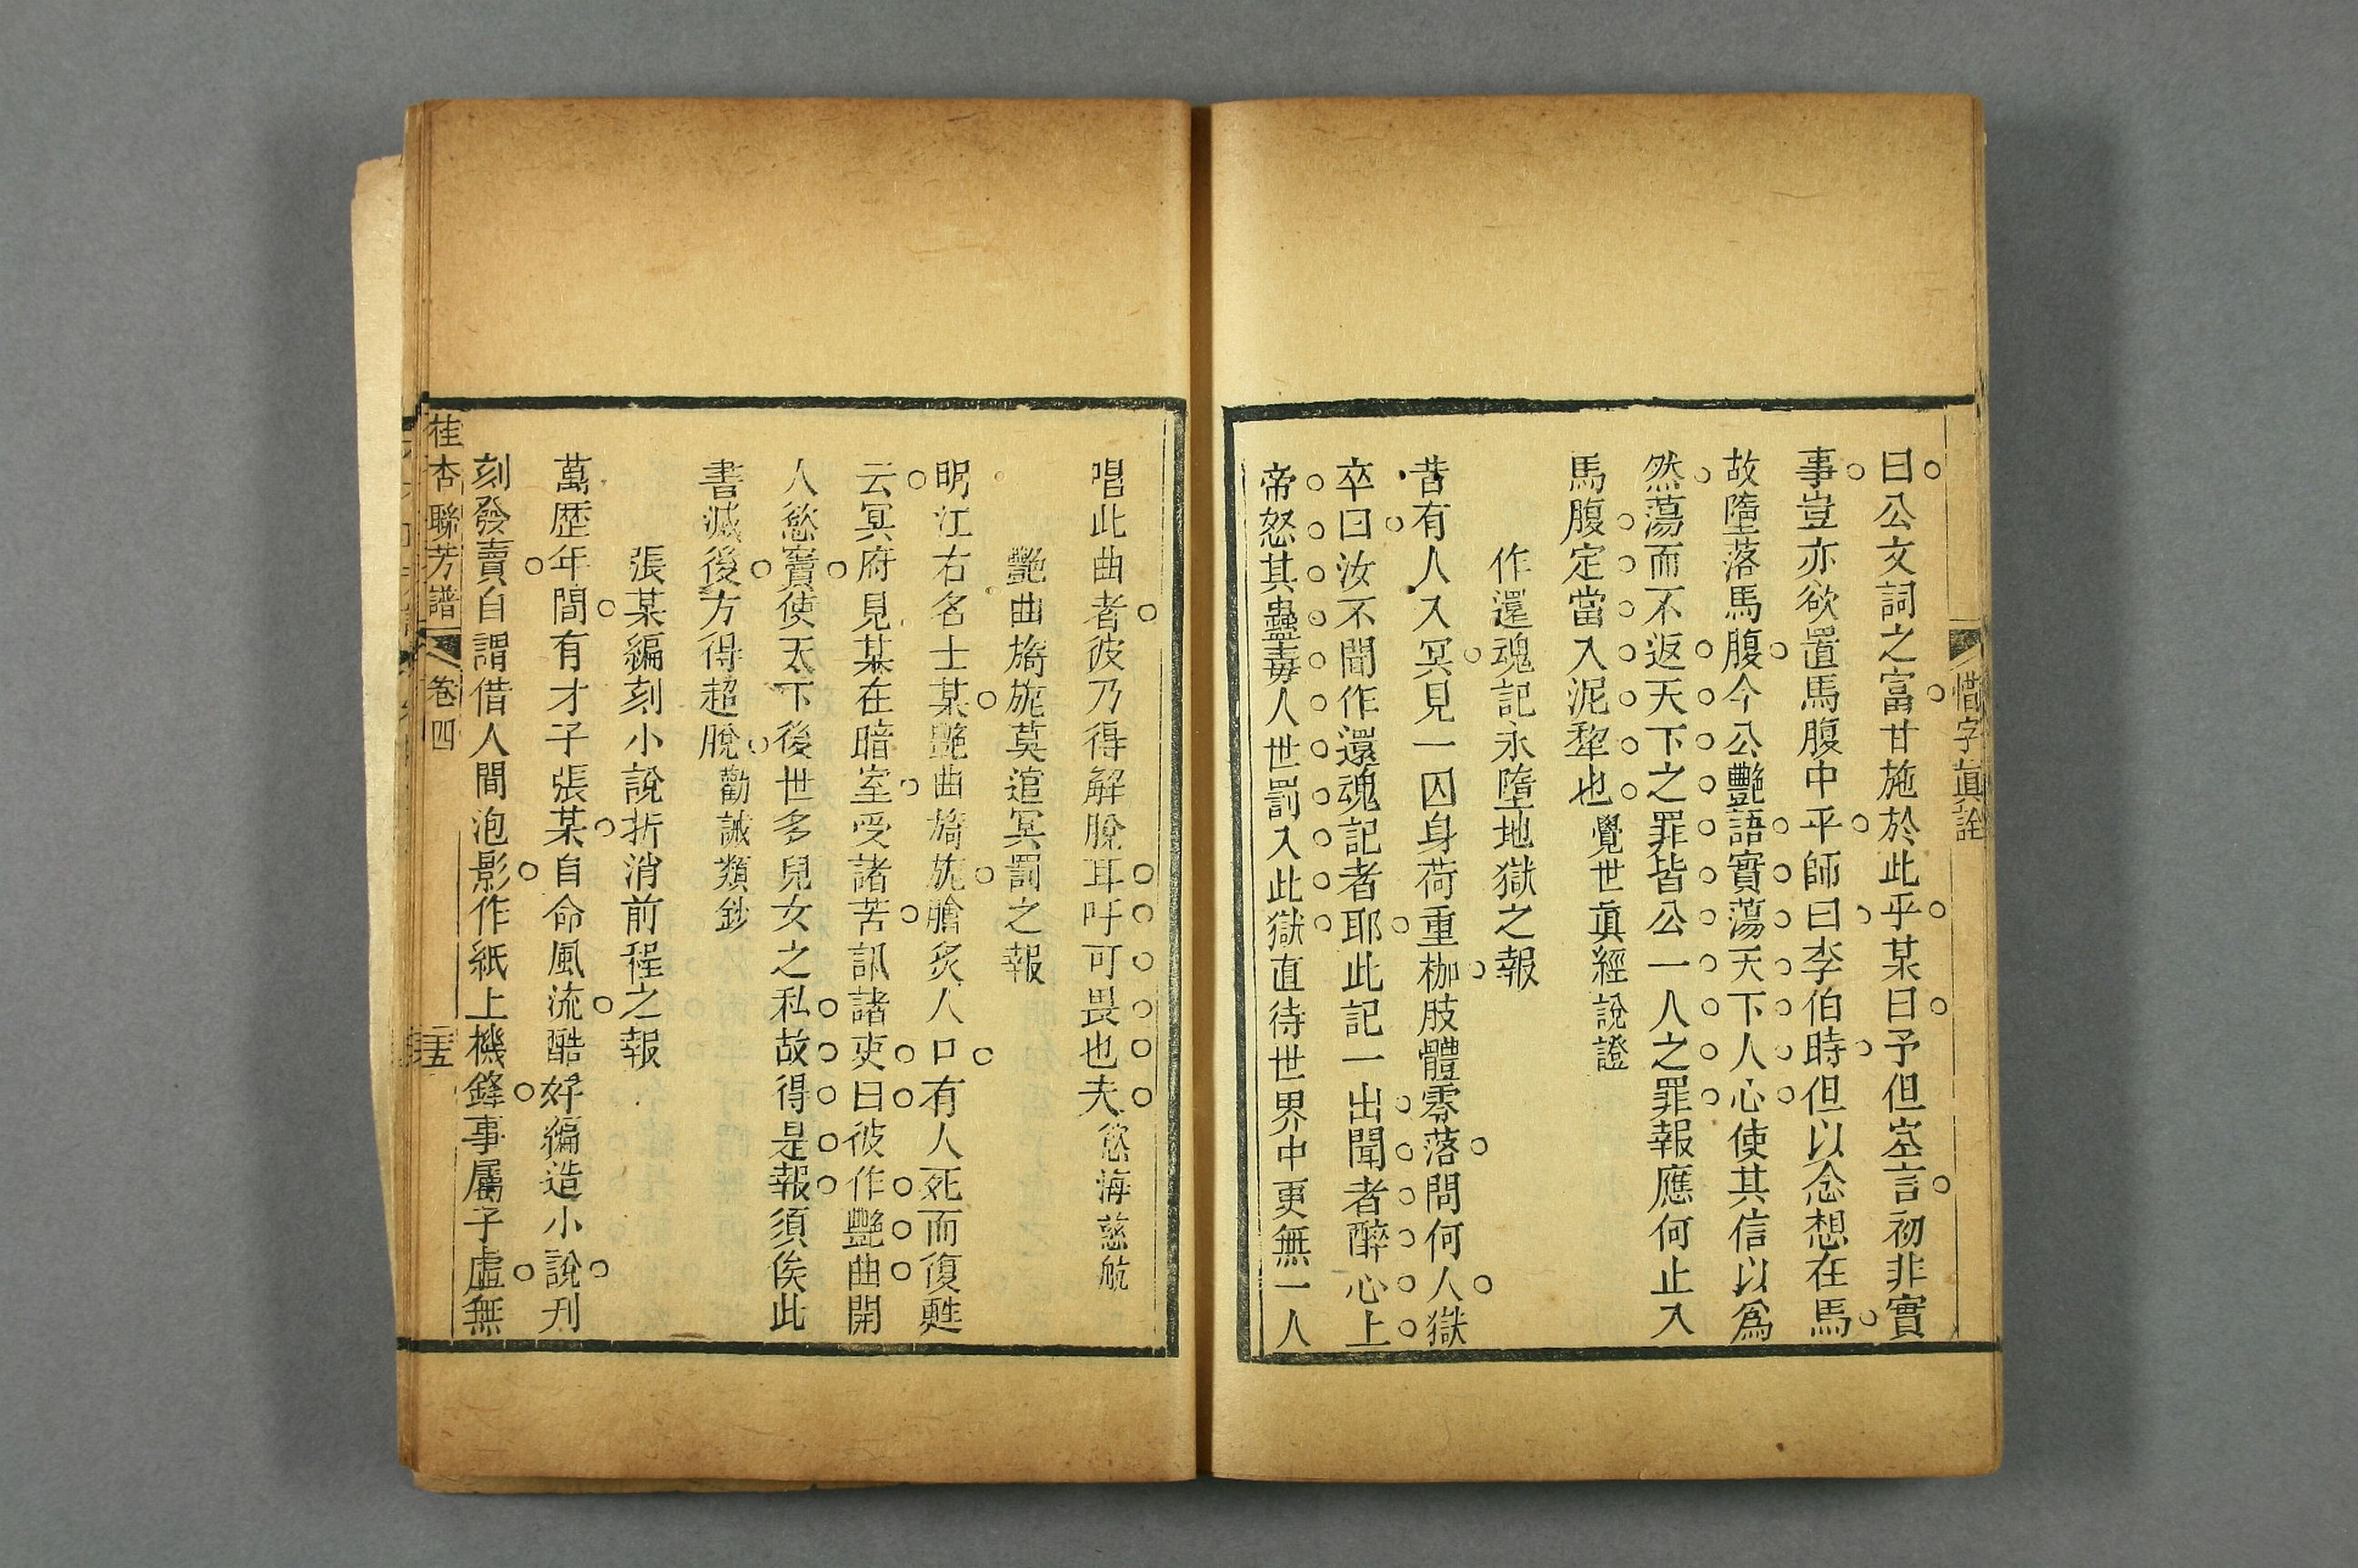 惜字眞詮
曰公文詞之富甘施於此乎某曰予但空言初非實
事豈亦欲置馬腹中乎師曰李伯時但以念想在馬
故墮落馬腹今公艷語實蕩天下人心使其信以爲
然蕩而不返天下之罪皆公一人之罪報應何止入
馬腹定當入泥犂也覺世眞經說證
作還魂記永墮地獄之報
昔有人入冥見一囚身荷重枷肢體零落問何人獄
卒曰汝不聞作還魂記者耶此記一出聞者醉心上
帝怒其蠱毒人世罰入此獄直待世界中更無一人
唱此曲者彼乃得解脫耳吁可畏也夫慾海慈航
艷曲旖旎莫逭冥罰之報
明江右名士某艷曲旖旎膾炙人口有人死而復甦
云冥府見某在暗室受諸苦訊諸吏曰彼作艷曲開
人慾竇使天下後世多兒女之私故得是報須俟此
書滅後方得超脫勸誡類鈔
張某編刻小說折消前程之報
萬歷年間有才子張某自命風流酷好編造小說刋
刻發賣自謂借人間泡影作紙上機鋒事屬子虛無
桂杏聯芳譜
卷四